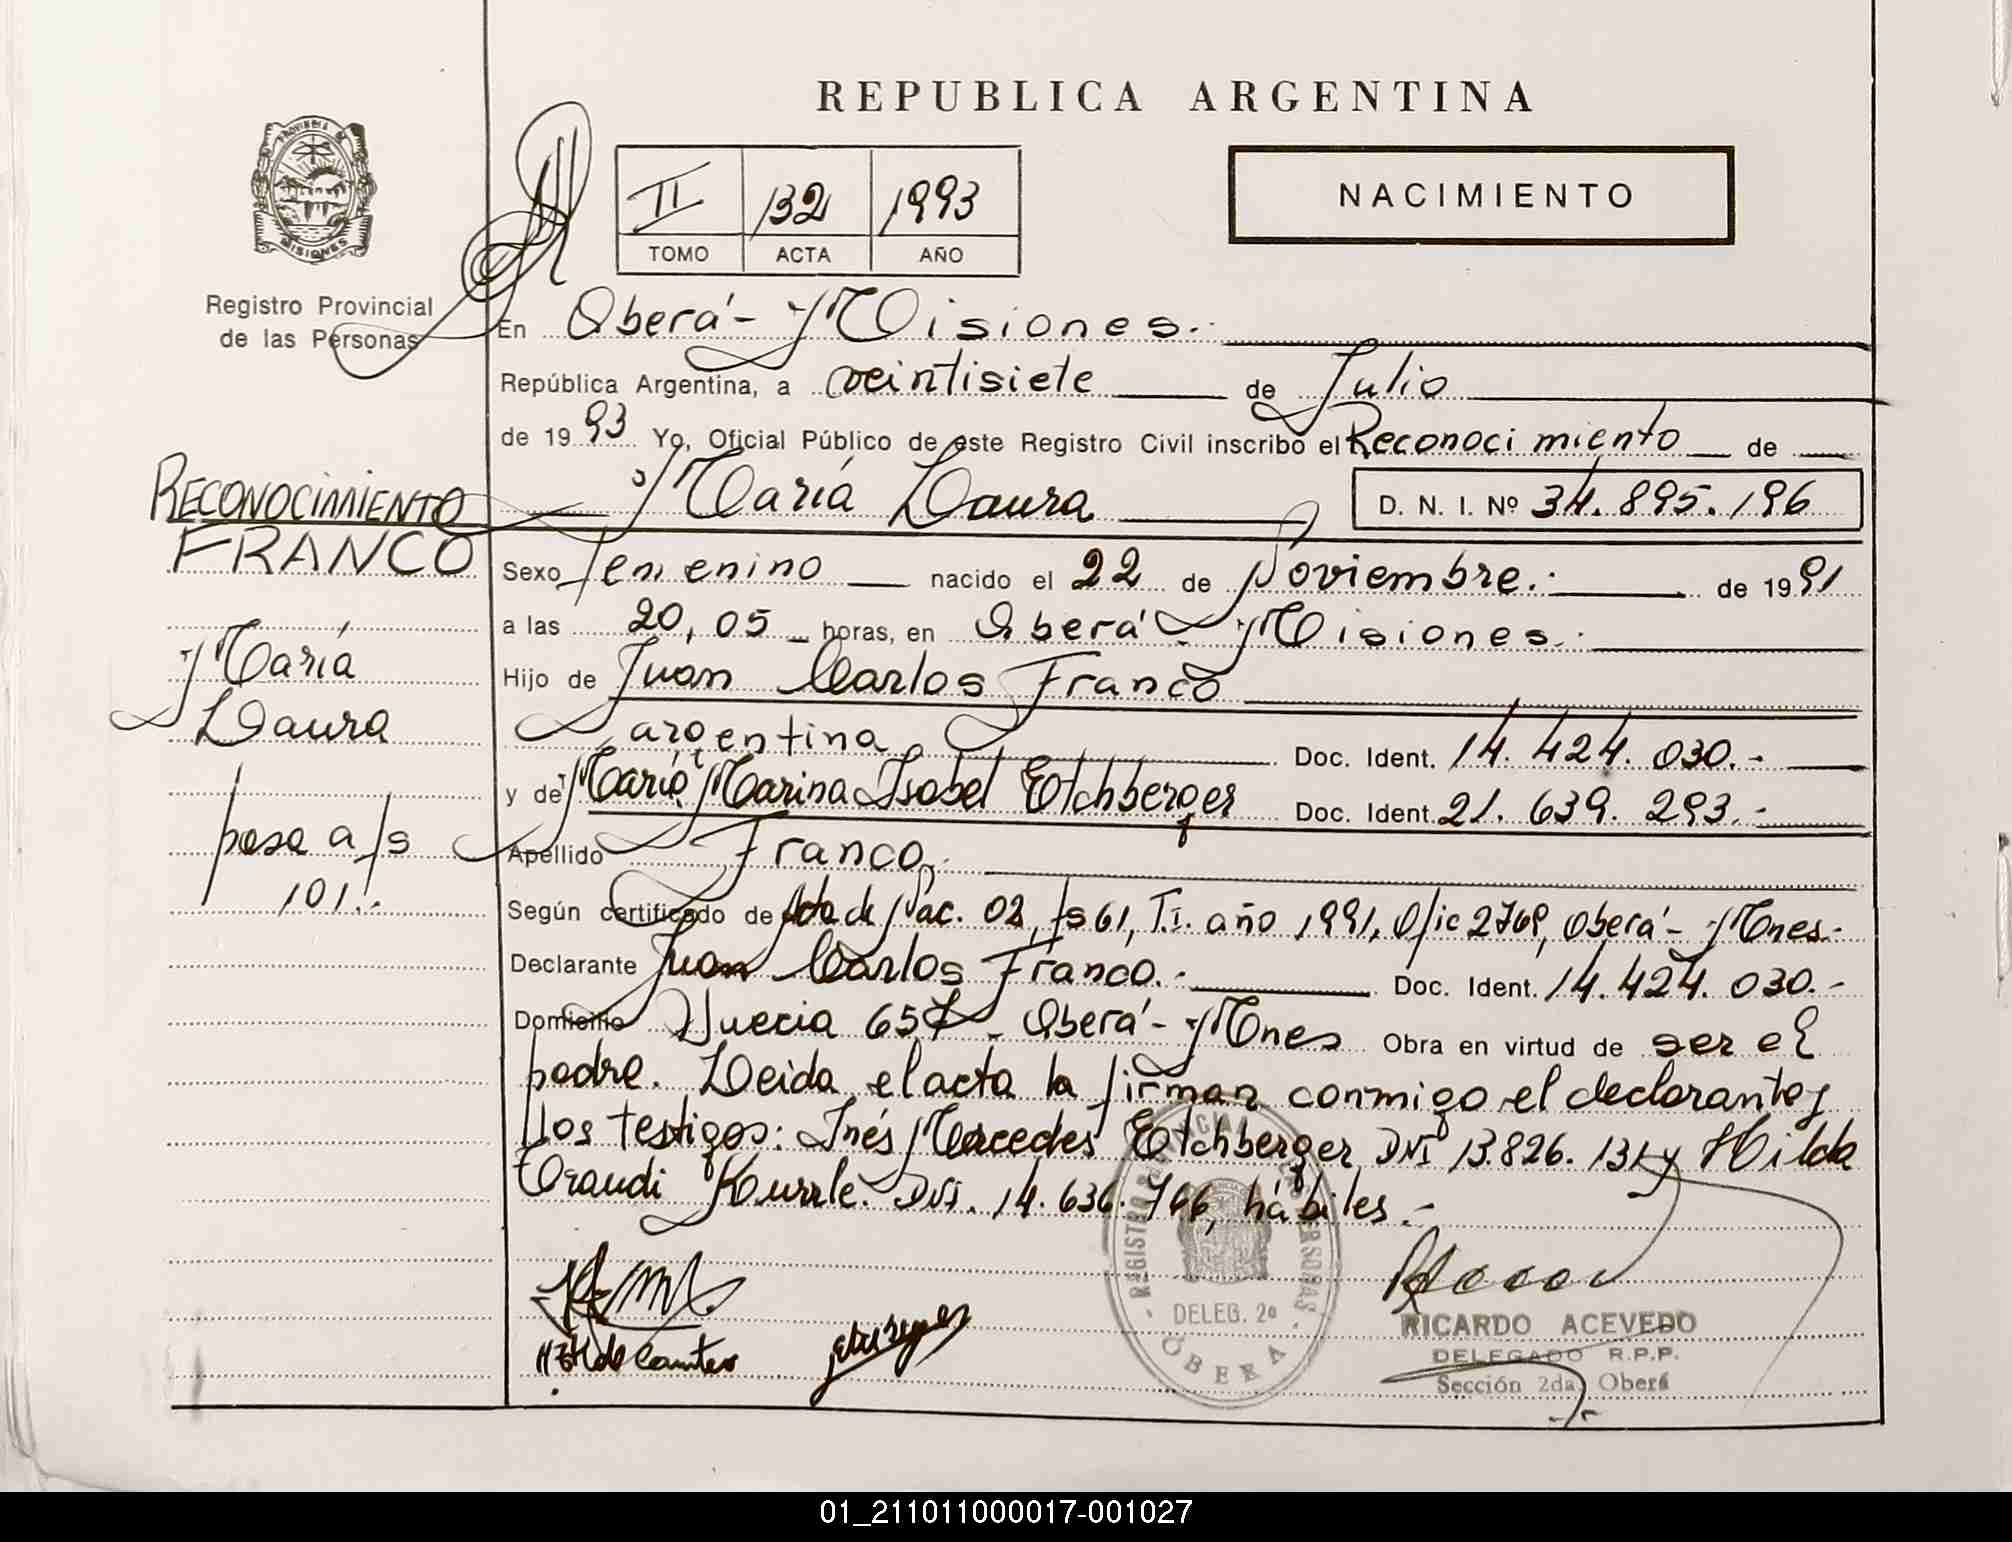 REPUBLICA ARGENTINA
PROVINCIA DE
MISIONES
Registro Provincial
de las Personas
II 132 1993
TOMO ACTA AÑO
NACIMIENTO
En Oberá - Misiones.-
República Argentina, a veintisiete de Julio
de 1993 Yo, Oficial Público de este Registro Civil inscribo el Reconocimiento de
María Laura D. N. I. Nº 34.895.196
RECONOCIMIENTO
FRANCO
María
Laura
pasa a fs
101.-
Sexo femenino nacido el 22 de Noviembre.- de 1991
a las 20,05 horas, en Oberá - Misiones.-
Hijo de Juan Carlos Franco
argentina Doc. Ident. 14.424.030.-
y de María Marina Isabel Etchberger Doc. Ident. 21.639.293.-
Apellido Franco.-
Según certificado de Acta de Nac. 02, fs 61, T.I. año 1991, Ofic 2769, Oberá - Mnes.-
Declarante Juan Carlos Franco.- Doc. Ident. 14.424.030.-
Domicilio Suecia 657 - Oberá - Mnes Obra en virtud de ser el
padre. Leida el acta la firman conmigo el declarante y
los testigos: Inés Mercedes Etchberger DNI 13.826.131 y Hilda
Kurrle. DNI. 14.636.766, hábiles.-
REGISTRO PROVINCIAL DE LAS PERSONAS
DELEG. 2a
OBERA
RICARDO ACEVEDO
DELEGADO R.P.P.
Sección 2da. Oberá
01_211011000017-001027